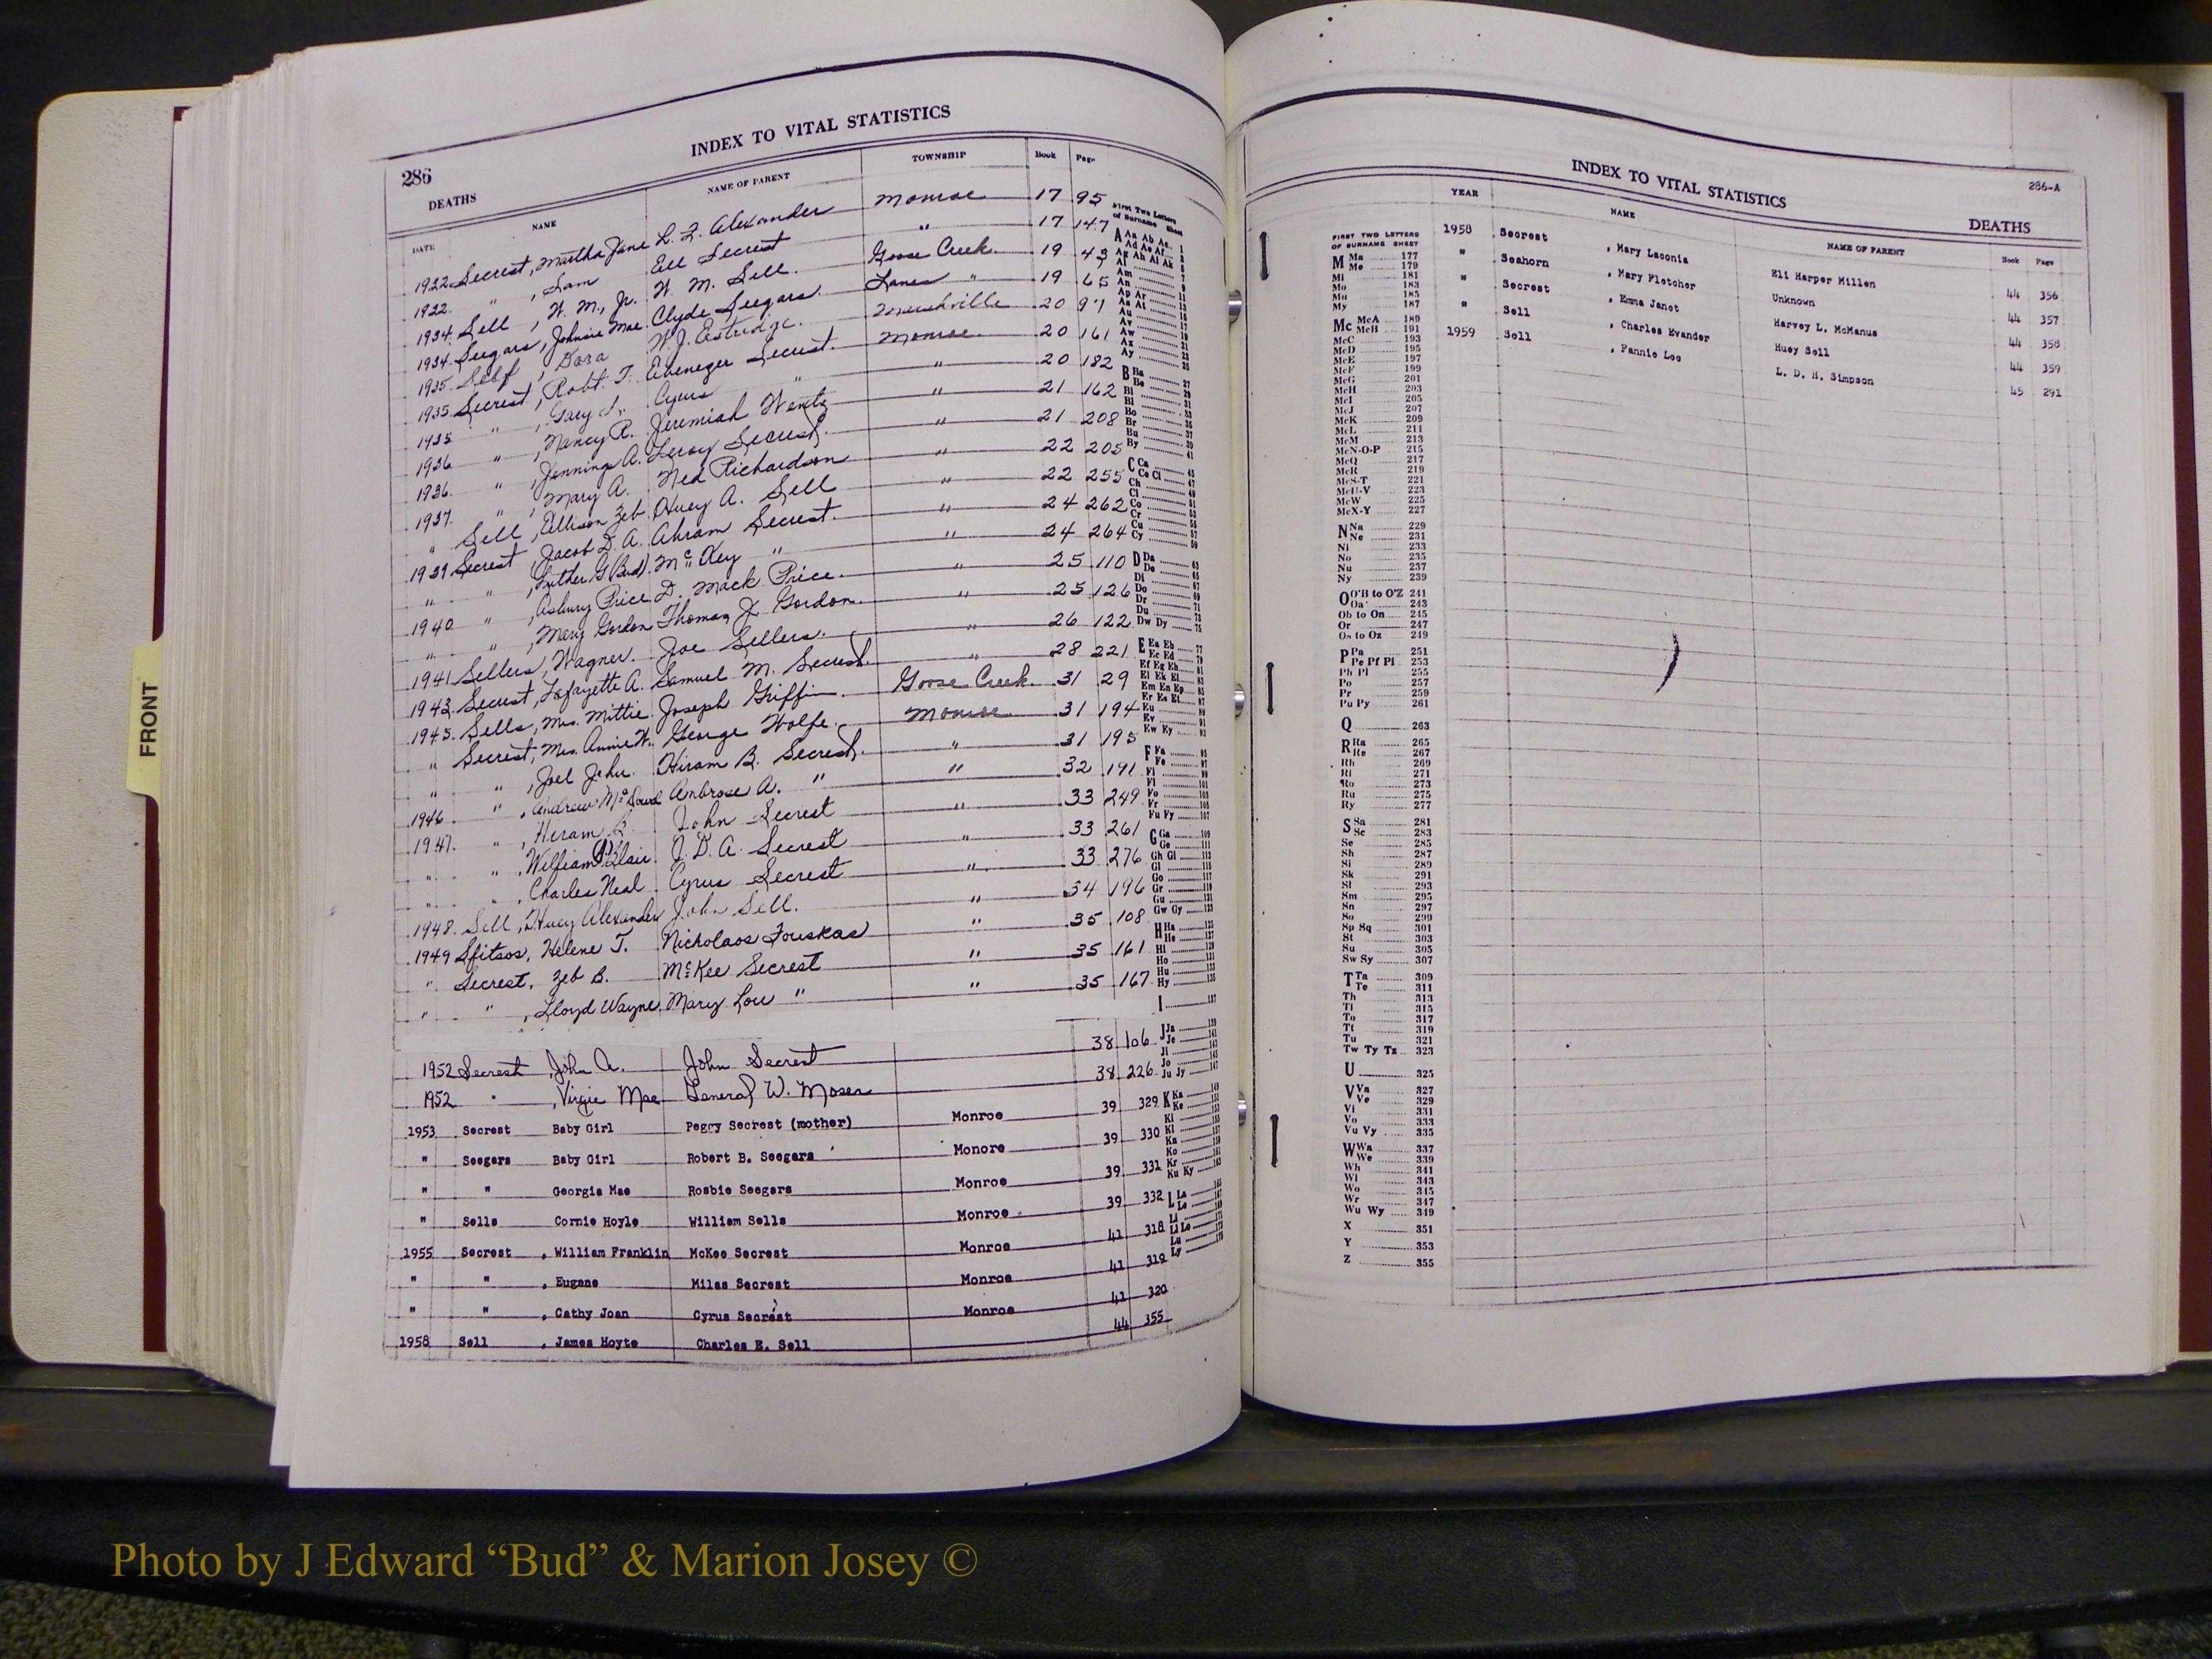 286
INDEX TO VITAL STATISTICS
DEATHS
DATE NAME NAME OF PARENT TOWNSHIP Book Page
1922 Secrest, Martha Jane L. Z. Alexander Monroe 17 95
1922 " , Sam Ell Secrest " 17 147
1934 Sell, W. M., Jr. W. M. Sell. Goose Creek 19 43
1934 Seegars, Johnsie Mae Clyde Seegars. Lanes " 19 65
1935 Self, Dora W. J. Estridge. 20 97
1935 Secrest, Robt. T. Ebeneger Secrest. Monroe 20 161
1935 " , Gary Cyrus " " 20 182
1936 " , Nancy R. Jeremiah Wentz " 21 162
1936 " , Jennings A. Leroy Secrest. " 21 208
1937 " , Mary A. Ned Richardson " 22 205
" Sell, Ellison Zeb Huey A. Sell " 22 255
1939 Secrest, Jacob D. A. Abram Secrest. " 24 262
" " , Luther G (Bud). " " 24 264
1940 " , Asbury Price D. Mack Price. " 25 110
" " , Mary Gordon Thomas J. Gordon. " 25 126
1941 Sellers, Wagner. Joe Sellers. " 26 122
1943 Secrest, Lafayette A. Samuel M. Secrest. " 28 221
1945. Sells, Mrs. Mittie Joseph Griffin. Goose Creek. 31 29
" Secrest, Mrs. Annie W. George Wolfe. Monroe 31 194
" " , Joel John. Hiram B. Secrest. " 31 195
1946 " , Andrew Ambrose A. " " 32 191
1947. " , Hiram John Secrest " 33 249
" " , William Blair J. D. A. Secrest " 33 261
" " , Charles Neal Cyrus Secrest " 33 276
1948. Sell, Huey Alexander John Sell. " 34 196
1949 Sfitsos, Helene T. Nicholaos Fouskas " 35 108
" Secrest, Zeb B. McKee Secrest " 35 161
" " , Lloyd Wayne Mary Lou " " 35 167
1952 Secrest John A. John Secrest 38 106
1952 " , Virgie Mae General W. Moser 38 226
1953 Secrest Baby Girl Peggy Secrest (mother) Monroe 39 329
" Seegars Baby Girl Robert B. Seegars Monore 39 330
" " Georgia Mae Rosbie Seegers Monroe 39 331
" Sells Cornie Hoyle William Sells Monroe 39 332
1955 Secrest , William Franklin McKee Secrest Monroe 41 318
" " , Eugene Milas Secrest Monroe 41 319
" " , Cathy Joan Cyrus Secrest Monroe 41 320
1958 Sell , James Hoyte Charles E. Sell 44 355
First Two Letters
of Surname Sheet
INDEX TO VITAL STATISTICS
286-A
DEATHS
YEAR NAME NAME OF PARENT Book Page
1958 Secrest , Mary Laconia Eli Harper Millen 44 356
" Seahorn , Mary Fletcher Unknown 44 357
" Secrest , Emma Janet Harvey L. McManus 44 358
" Sell , Charles Evander Huey Sell 44 359
1959 Sell , Fannie Lee L. D. H. Simpson 45 291
FIRST TWO LETTERS
OF SURNAME SHEET
M Ma 177
Me 179
Mi 181
Mo 183
Mu 185
My 187
Mc McA 189
McB 191
McC 193
McD 195
McE 197
McF 199
McG 201
McH 203
McI 205
McJ 207
McK 209
McL 211
McM 213
McN-O-P 215
McQ 217
McR 219
McS-T 221
McU-V 223
McW 225
McX-Y 227
N Na 229
Ne 231
Ni 233
No 235
Nu 237
Ny 239
O O'B to O'Z 241
Oa 243
Ob to On 245
Or 247
Os to Oz 249
P Pa 251
Pe Pf Pi 253
Ph Pl 255
Po 257
Pr 259
Pu Py 261
Q 263
R Ra 265
Re 267
Rh 269
Ri 271
Ro 273
Ru 275
Ry 277
S Sa 281
Sc 283
Se 285
Sh 287
Si 289
Sk 291
Sl 293
Sm 295
Sn 297
So 299
Sp Sq 301
St 303
Su 305
Sw Sy 307
T Ta 309
Te 311
Th 313
Ti 315
To 317
Tt 319
Tu 321
Tw Ty Tz 323
U 325
V Va 327
Ve 329
Vi 331
Vo 333
Vu Vy 335
W Wa 337
We 339
Wh 341
Wi 343
Wo 345
Wr 347
Wu Wy 349
X 351
Y 353
Z 355
FRONT
Photo by J Edward “Bud” & Marion Josey ©